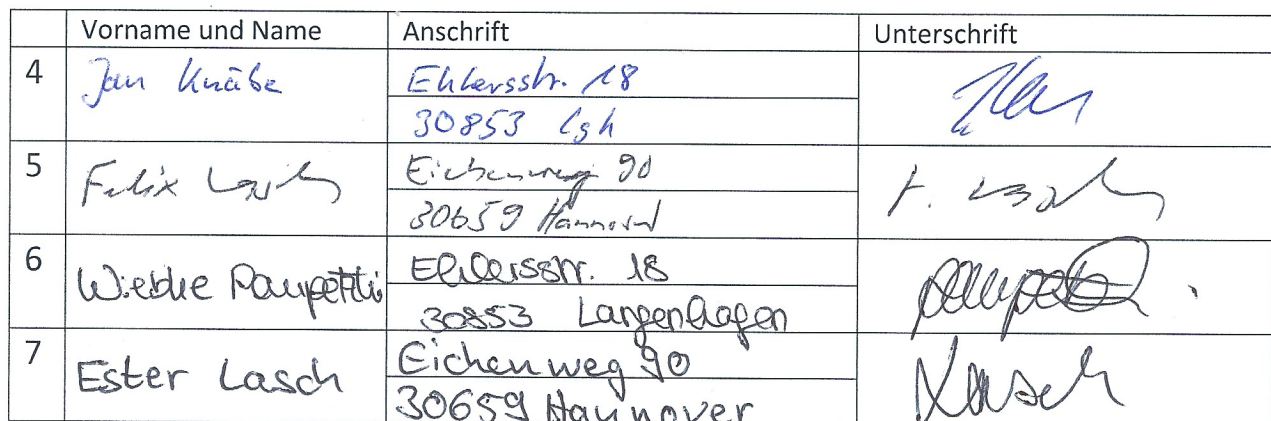 Vorname und Name Anschrift Unterschrift
4 Jan Knäbe Ehlersstr. 18
30853 Lgh
5 Felix Eichenweg 90
30659 Hannover
6 Wiebke Ehlersstr. 18
30853 Langenhagen
7 Ester Lasch Eichenweg 90 Lasch
30659 Hannover